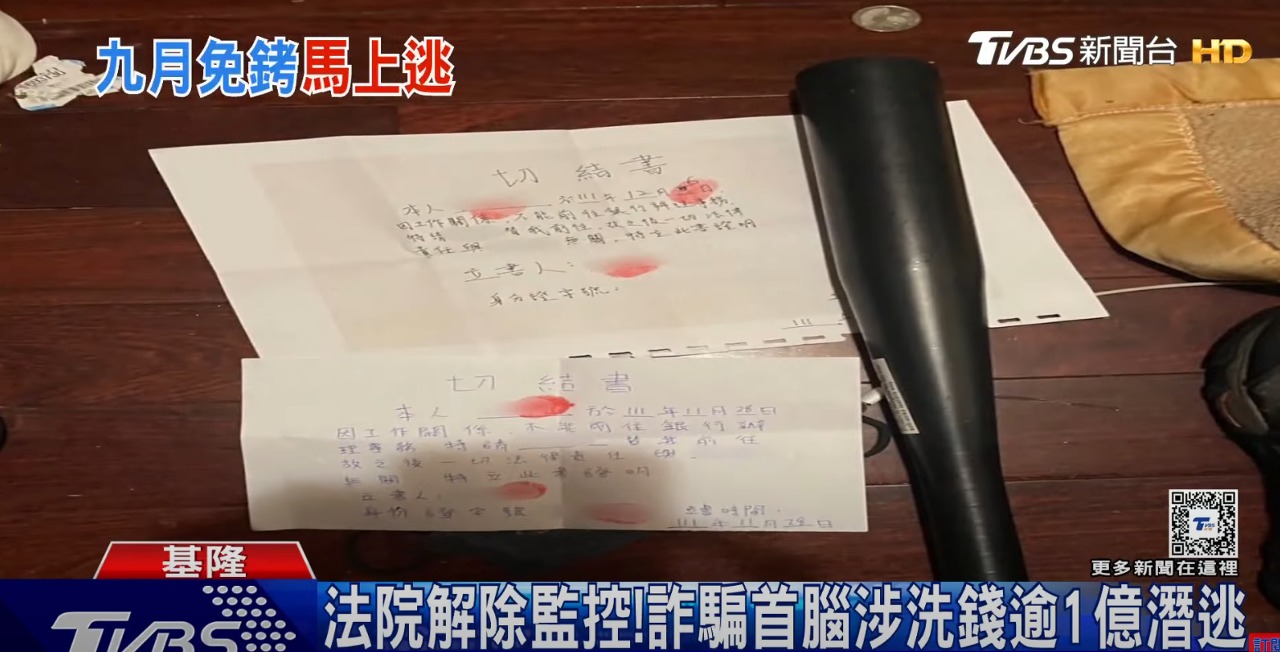 九月免銬馬上逃
TVBS新聞台 HD
切結書
本人 於111年12月 日
因工作關係,不能前往銀行辦理事務,
特請 替我前往,故之後一切法律
責任與 無關,特立此書證明
立書人:
身分證字號:
111
切結書
本人 於111年11月28日
因工作關係,不能前往銀行辦
理事務 特請 替我前往
故之後一切法律責任與
無關 特立此書證明
立書人:
身份證字號
立書時間:
111年11月28日
更多新聞在這裡
基隆
TVBS
法院解除監控!詐騙首腦涉洗錢逾1億潛逃